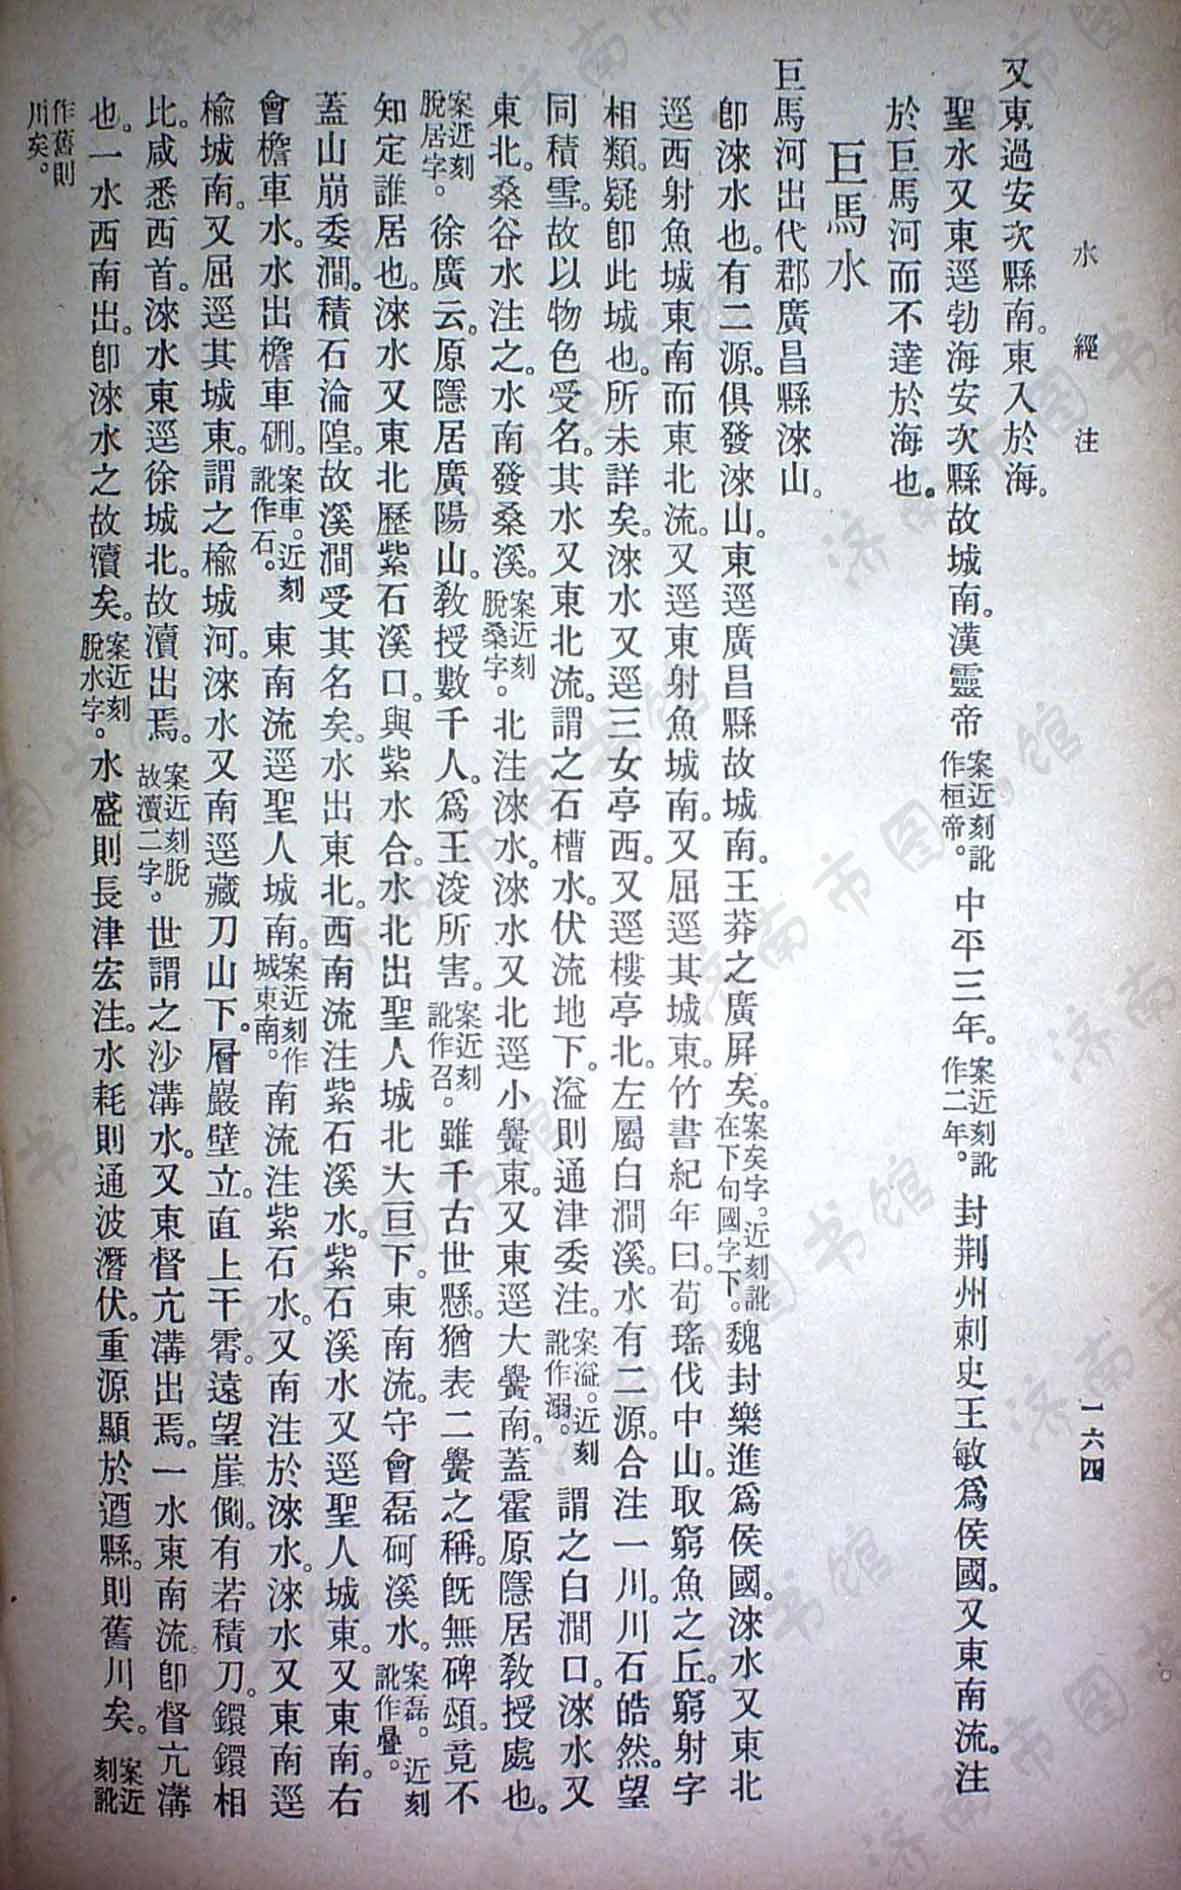 水經注
一六四
又東過安次縣南。東入於海。
聖水又東逕勃海安次縣故城南。漢靈帝案近刻訛作桓帝。中平三年。案近刻訛作二年。封荆州刺史王敏爲侯國。又東南流。注
於巨馬河而不達於海也。
巨馬水
巨馬河出代郡廣昌縣淶山。
卽淶水也。有二源。俱發淶山。東逕廣昌縣故城南。王莽之廣屛矣。案矣字。近刻訛在下句國字下。魏封樂進爲侯國。淶水又東北
逕西射魚城東南而東北流。又逕東射魚城南。又屈逕其城東。竹書紀年曰。荀瑤伐中山。取窮魚之丘。窮射字
相類。疑卽此城也。所未詳矣。淶水又逕三女亭西。又逕樓亭北。左屬白澗溪。水有二源。合注一川。川石皓然。望
同積雪。故以物色受名。其水又東北流。謂之石槽水。伏流地下。溢則通津委注。案溢。近刻訛作溺。謂之白澗口。淶水又
東北。桑谷水注之。水南發桑溪。案近刻脫桑字。北注淶水。淶水又北逕小黌東。又東逕大黌南。蓋霍原隱居敎授處也。
案近刻脫居字。徐廣云。原隱居廣陽山。敎授數千人。爲王浚所害。案近刻訛作召。雖千古世懸。猶表二黌之稱。旣無碑頌。竟不
知定誰居也。淶水又東北歷紫石溪口。與紫水合。水北出聖人城北大亘下。東南流。守會磊砢溪水。案磊。近刻訛作疊。
蓋山崩委澗。積石淪隍。故溪澗受其名矣。水出東北。西南流注紫石溪水。紫石溪水又逕聖人城東。又東南。右
會檐車水。水出檐車硎。案車。近刻訛作石。東南流逕聖人城南。案近刻作城東南。南流注紫石水。又南注於淶水。淶水又東南逕
楡城南。又屈逕其城東。謂之楡城河。淶水又南逕藏刀山下。層巖壁立。直上干霄。遠望崖側。有若積刀。鐶鐶相
比。咸悉西首。淶水東逕徐城北。故瀆出焉。案近刻脫故瀆二字。世謂之沙溝水。又東督亢溝出焉。一水東南流。卽督亢溝
也。一水西南出。卽淶水之故瀆矣。案近刻脫水字。水盛則長津宏注。水耗則通波潛伏。重源顯於逎縣。則舊川矣。案近刻訛
作舊則川矣。